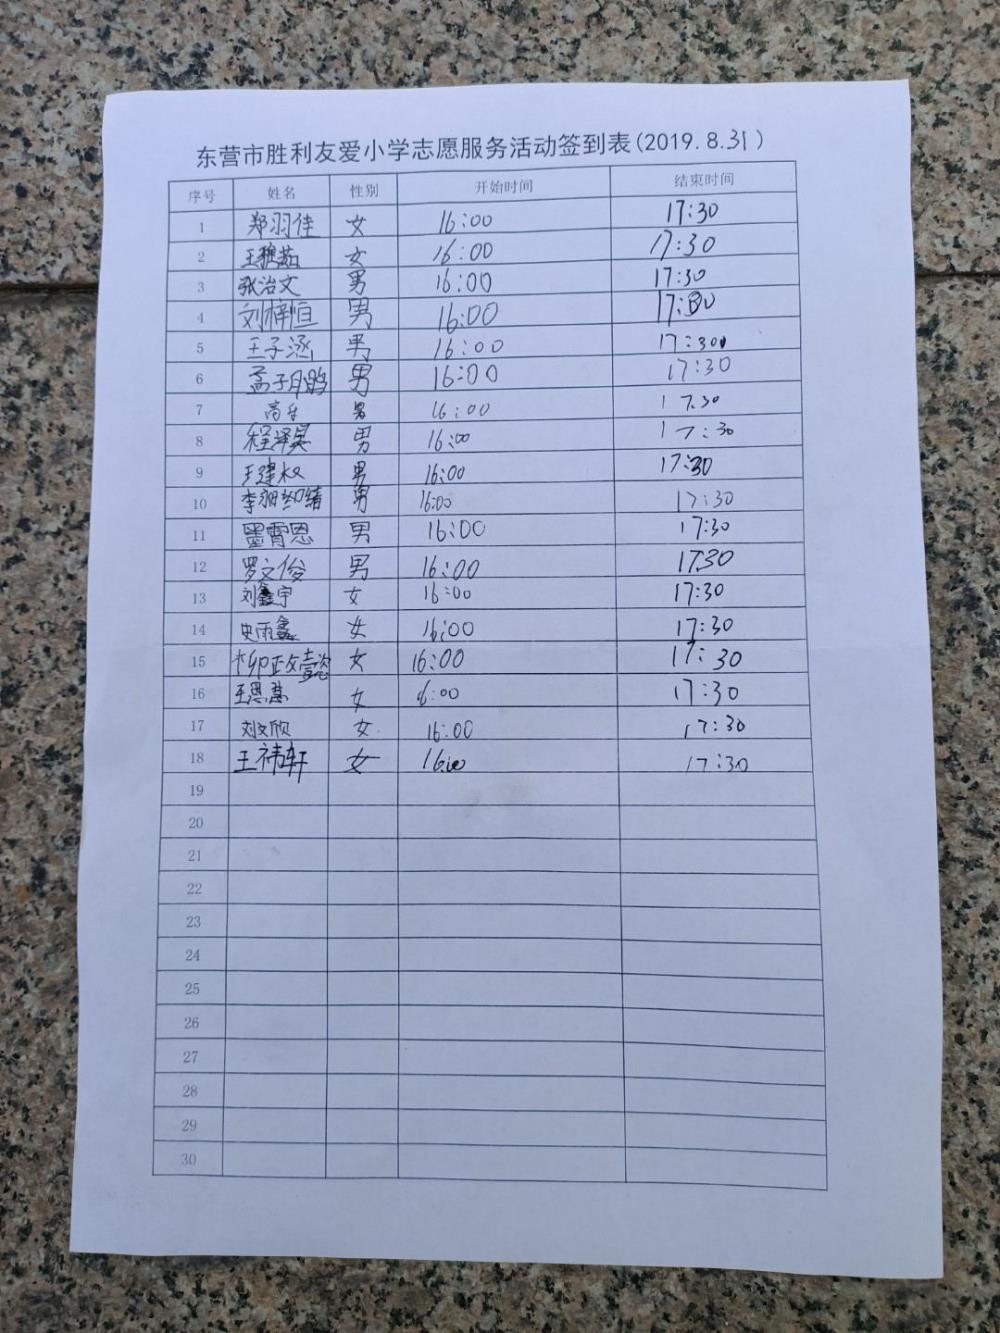 东营市胜利友爱小学志愿服务活动签到表(2019.8.31)
序号 姓名 性别 开始时间 结束时间
1 郑羽佳 女 16:00 17:30
2 王 女 16:00 17:30
3 张治文 男 16:00 17:30
4 刘梓恒 男 16:00 17:30
5 王子涵 男 16:00 17:30
6 孟子 男 16:00 17:30
7 高 男 16:00 17.30
8 程泽昊 男 16:00 17:30
9 王建权 男 16:00 17:30
10 李 男 16:00 17:30
11 墨霄恩 男 16:00 17:30
12 罗文俊 男 16:00 17:30
13 刘鑫宇 女 16:00 17:30
14 史雨鑫 女 16:00 17:30
15 柳政壹 女 16:00 17:30
16 王思 女 16:00 17:30
17 刘文欣 女 16:00 17:30
18 王祎轩 女 16:00 17:30
19
20
21
22
23
24
25
26
27
28
29
30